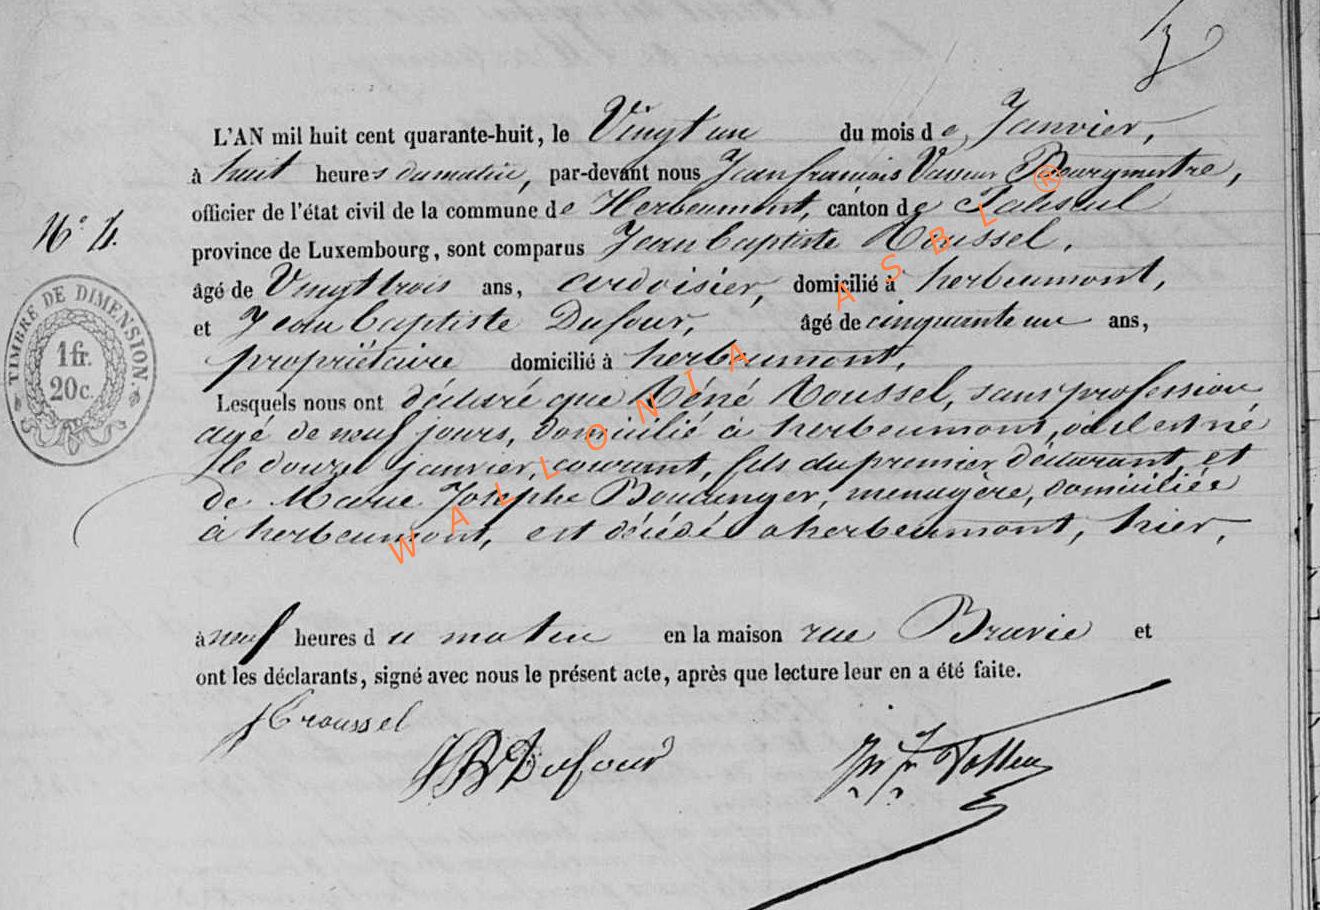 3
L'AN mil huit cent quarante-huit, le Vingt un du mois de Janvier,
à huit heures du matin, par-devant nous Jean françois Vasseur Bourgmestre,
officier de l'état civil de la commune de Herbeumont, canton de Paliseul
N° 4.
province de Luxembourg, sont comparus Jean baptiste Roussel,
âgé de Vingt trois ans, ardoisier, domicilié à herbeumont,
et Jean baptiste Dufour, âgé de cinquante un ans,
propriétaire domicilié à herbeumont,
Lesquels nous ont déclaré que Réné Roussel, sans profession
agé de neuf jours, domicilié à herbeumont, où il est né
le douze janvier, courant, fils du premier déclarant, et
de Marie Josephe Boulanger, menagère, domiciliée
à herbeumont, est décédé a herbeumont, hier,
à neuf heures du matin en la maison rue Bravie et
ont les déclarants, signé avec nous le présent acte, après que lecture leur en a été faite.
roussel
JB Dufour
TIMBRE DE DIMENSION.
1 fr.
20 c.
WALLONIA ASBL ®